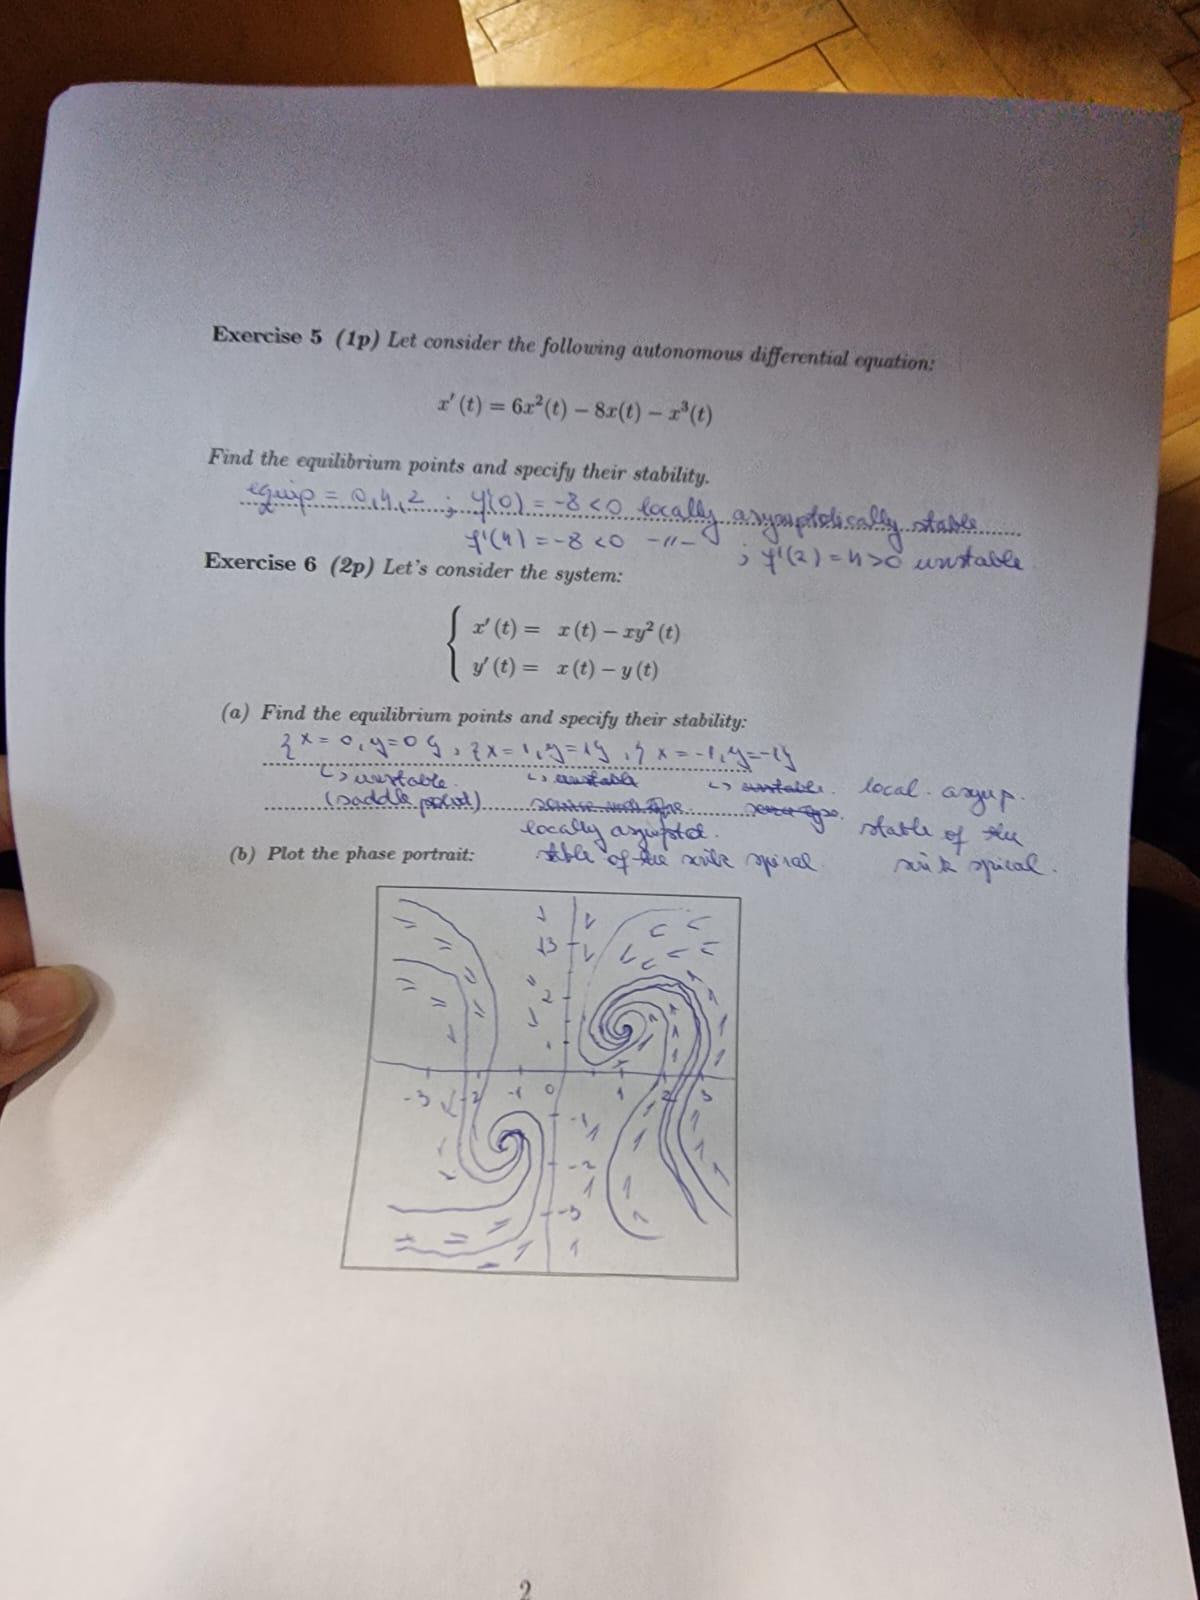 Exercise 5 (1p) Let consider the following autonomous differential equation:
x′(t) = 6x²(t) − 8x(t) − x³(t)
Find the equilibrium points and specify their stability.
equip = 0,4,2 ; f'(0) = -8 <0 locally asymptotically stable
f'(4) = -8 <0 -"- ; f'(2) = 4>0 unstable
Exercise 6 (2p) Let's consider the system:
x′(t) = x(t) − xy²(t)
y′(t) = x(t) − y(t)
(a) Find the equilibrium points and specify their stability:
{x=0, y=0}, {x=1, y=1}, {x=-1, y=-1}
↳ unstable ↳ unstable ↳ unstable. local. asymp.
(saddle point) stable of the
locally asymptot. sink spiral.
(b) Plot the phase portrait: stable of the sink spiral
3
2
1
-3 -2 -1 0 1 2 3
-1
-2
-3
2